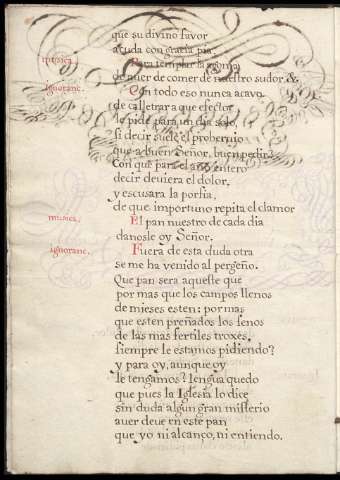 que su divino favor
acuda con gracia pia.
musica. Para templar la
de auer de comer de nuestro sudor &
ignoranc. Con todo eso nunca acavo
de calletrar a que efecto
le pide para un dia solo,
si decir suele el proberuio
que a buen Señor, buen pedir?
Con que para el año entero
decir deviera el dolor,
y escusara la porfia,
de que importuno repita el clamor
musica. El pan nuestro de cada dia
danosle oy Señor.
ignoranc. Fuera de esta duda otra
se me ha venido al pergeño.
Que pan sera aqueste que
por mas que los campos llenos
de mieses esten; por mas
que esten preñados los senos
de las mas fertiles troxes,
siempre le estamos pidiendo?
y para oy, aunque oy
le tengamos? lengua quedo
que pues la Iglesia lo dice
sin duda algun gran misterio
auer deve en este pan
que yo ni alcanço, ni entiendo.